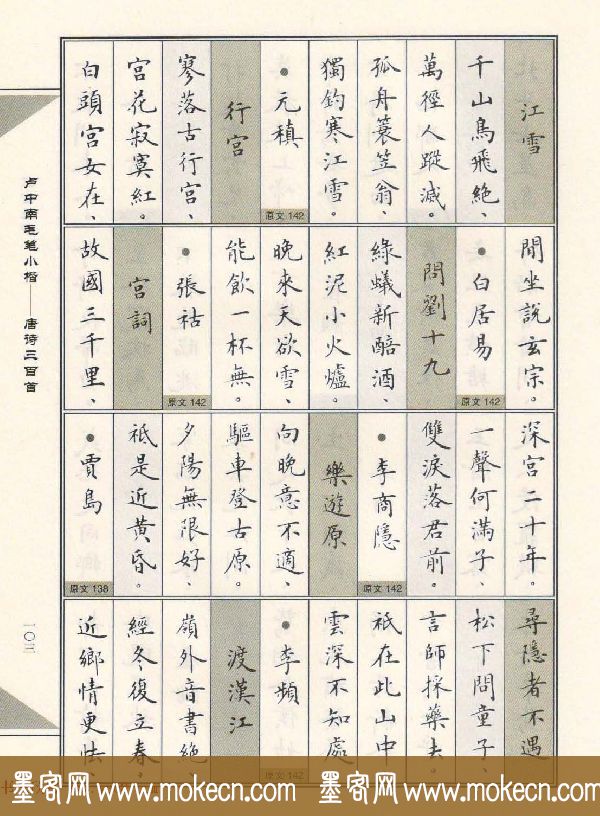 江雪
千山鳥飛絶、
萬徑人蹤滅。
孤舟簑笠翁、
獨釣寒江雪。
●元稹
原文142
行宮
寥落古行宮、
宮花寂寞紅。
白頭宮女在、
閒坐說玄宗。
●白居易
原文142
問劉十九
綠蟻新醅酒、
紅泥小火爐。
晚來天欲雪、
能飲一杯無。
●張祜
原文142
宮詞
故國三千里、
深宮二十年。
一聲何滿子、
雙淚落君前。
●李商隱
原文142
樂遊原
向晚意不適、
驅車登古原。
夕陽無限好、
祇是近黃昏。
●賈島
原文138
尋隱者不遇
松下問童子、
言師採藥去。
祇在此山中
雲深不知處
●李頻
原文142
渡漢江
嶺外音書絶、
經冬復立春。
近鄉情更怯、
卢中南毛笔小楷——唐诗三百首
一〇三
墨客网 www.mokecn.com 墨客网 www.mokecn.com